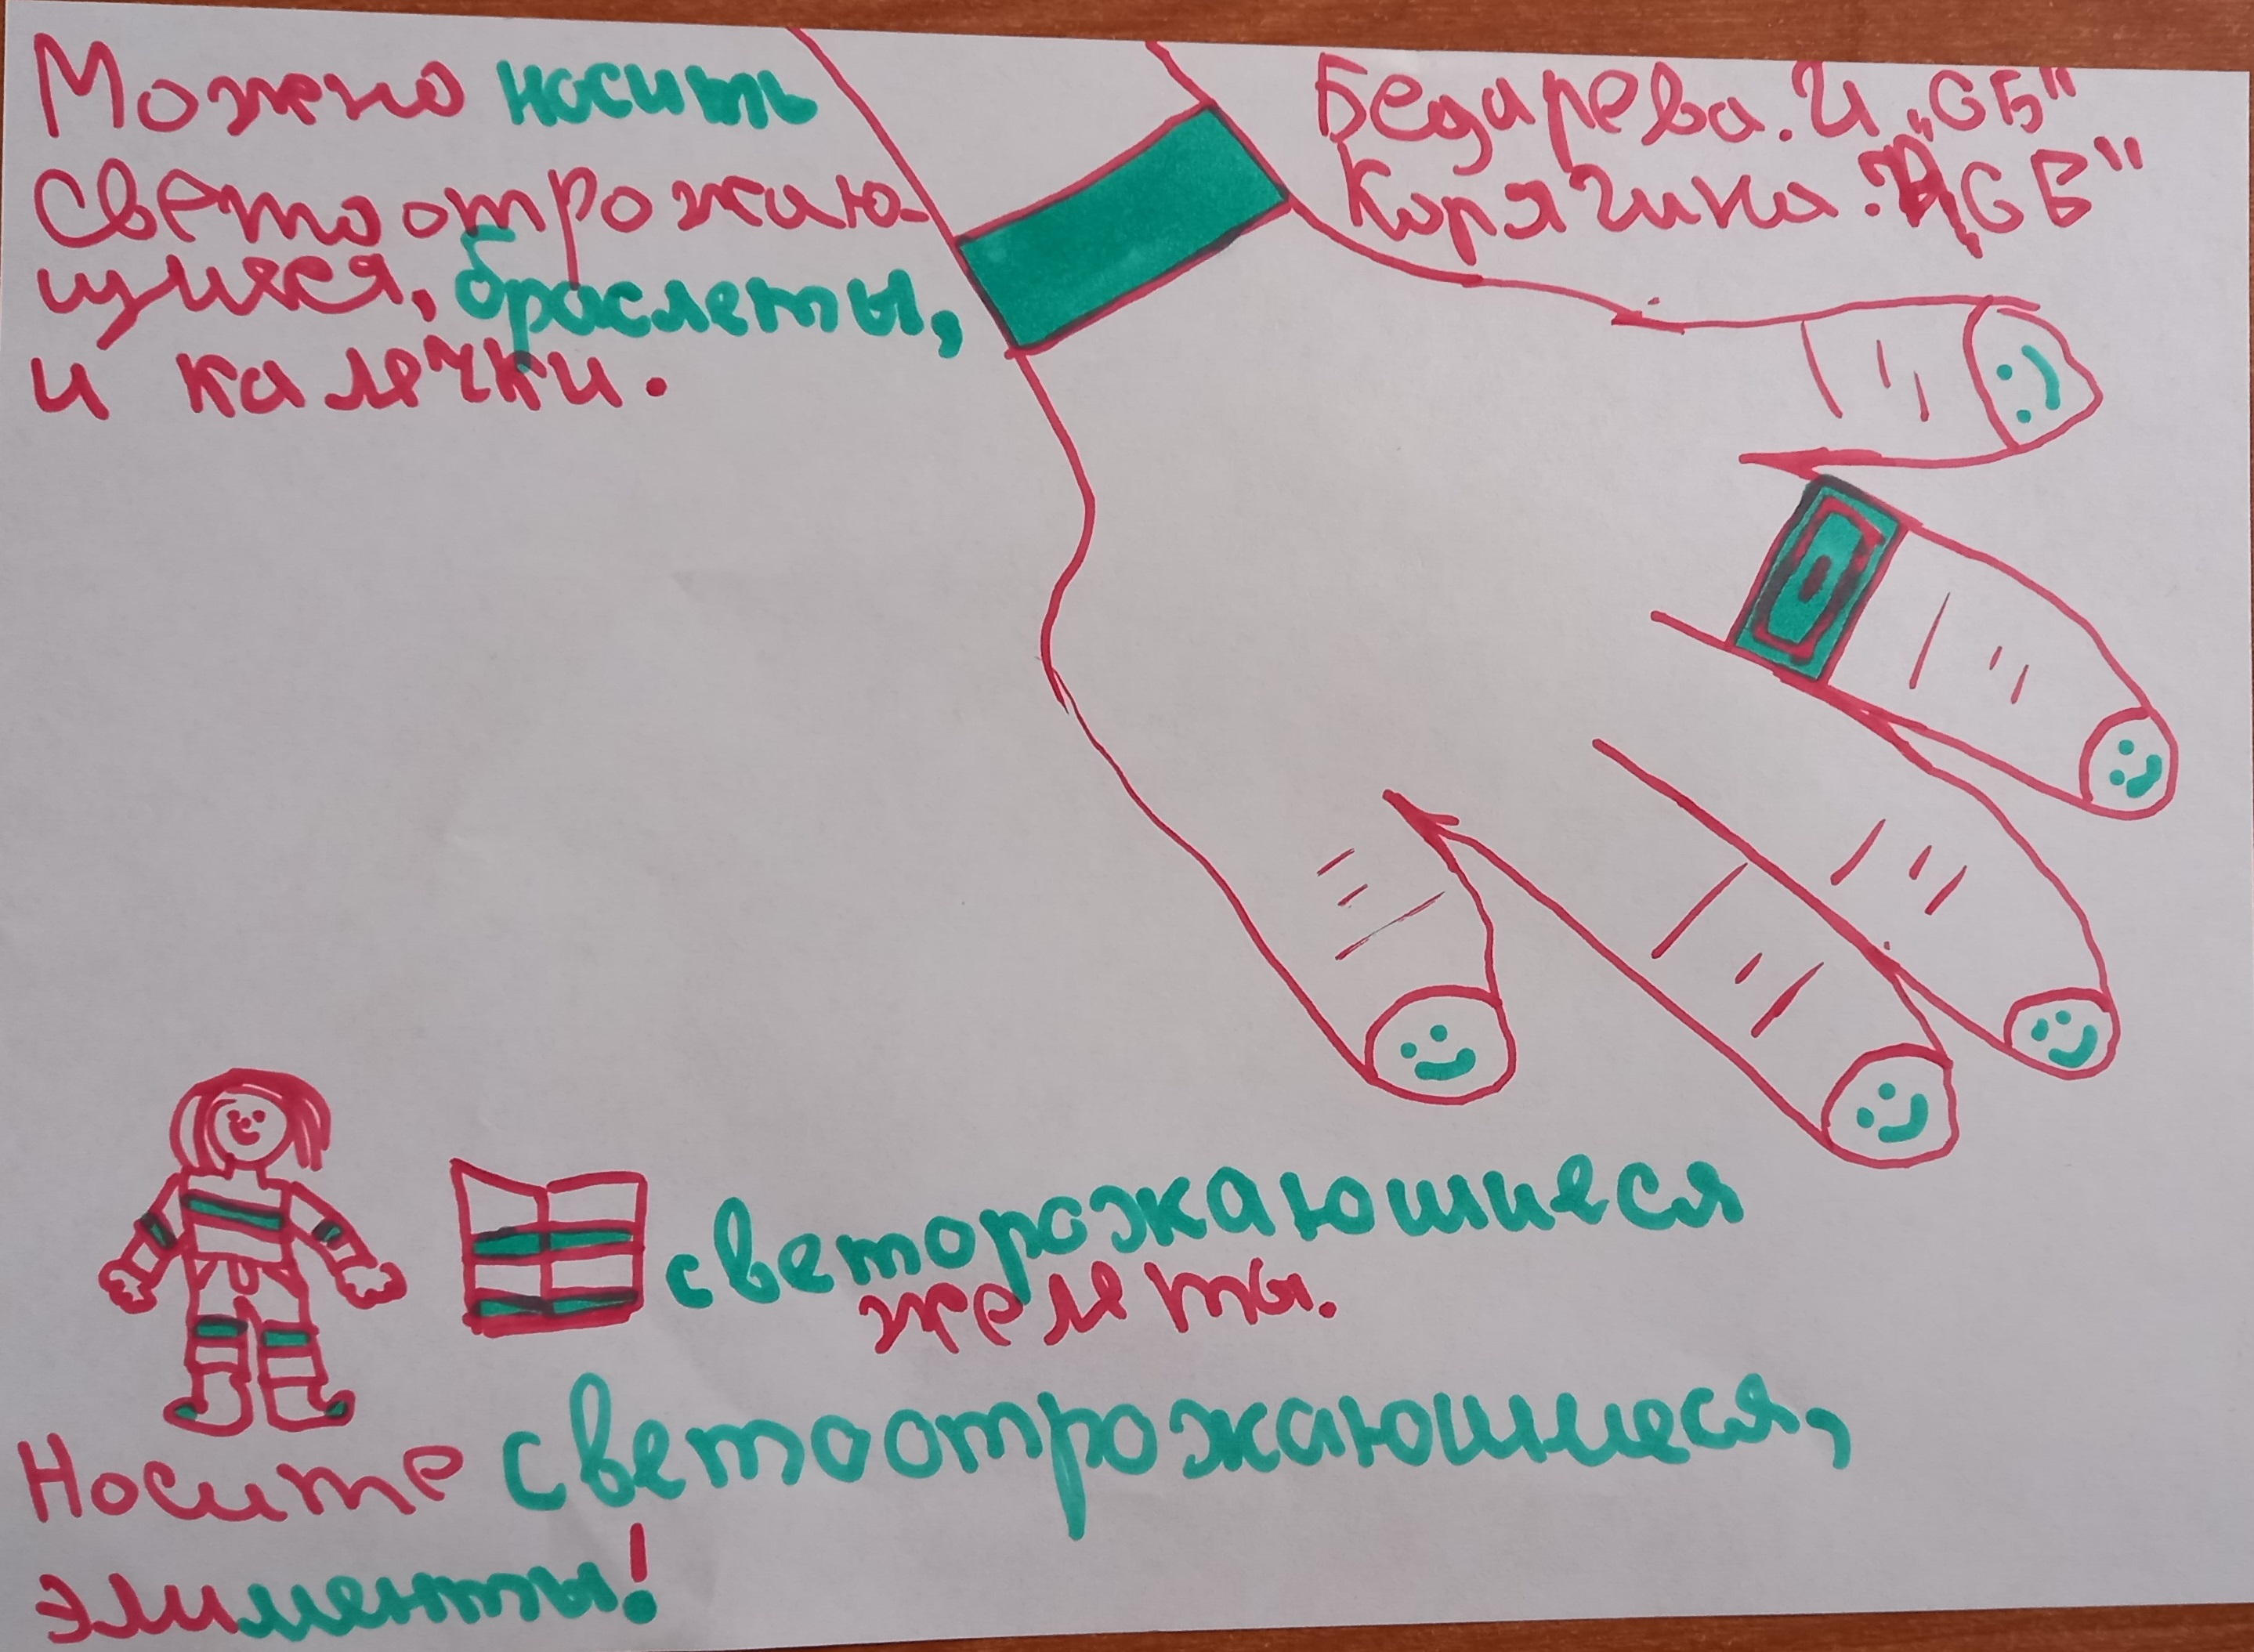 Можно носить
светоотрожаю-
щиеся, браслеты,
и калечки.
Бедарева. И „6Б"
Корягина. „6Б"
светорожаюшиеся
желеты.
Носите светоотрожаюшиеся,
элименты!